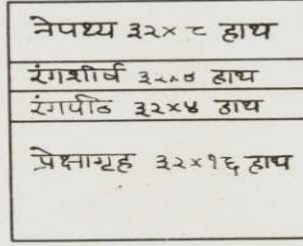 नेपथ्य ३२×८ हाथ
रंगशीर्ष ३२×४ हाथ
रंगपीठ ३२×४ हाथ
प्रेक्षागृह ३२×१६ हाथ